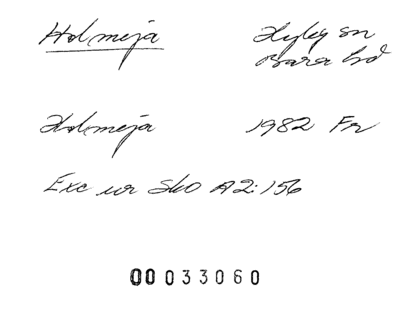 Holmeja
Hyby sn
Bara hd
Holmeja
1982 Fr
Exc ur SkO A2:156
00033060